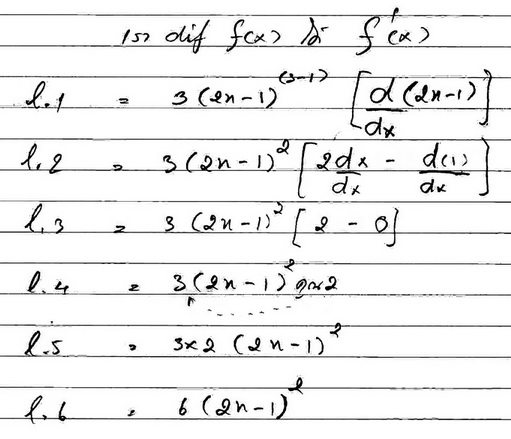 เรา dif f(x) ได้ f'(x)
l.1 = 3(2x-1)^(3-1) [d(2x-1)/dx]
l.2 = 3(2x-1)^2 [2dx/dx - d(1)/dx]
l.3 = 3(2x-1)^2 [2-0]
l.4 = 3(2x-1)^2 คูณ2
l.5 = 3×2 (2x-1)^2
l.6 = 6(2x-1)^2